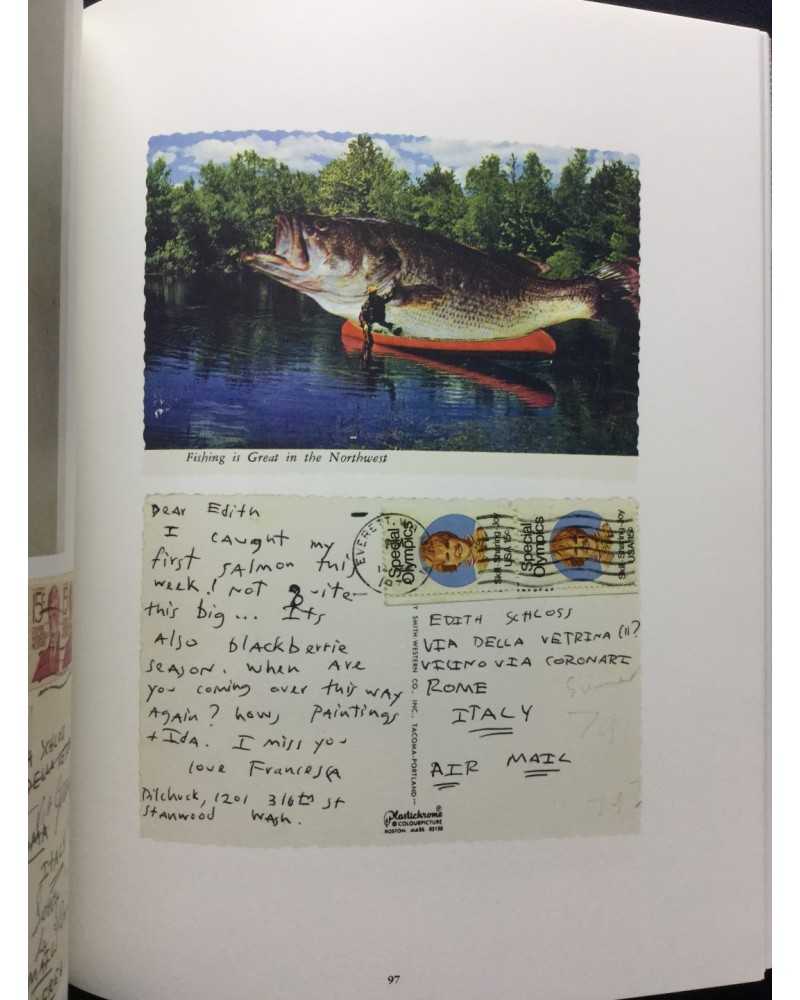 Fishing is Great in the Northwest
Dear Edith
I caught my
first salmon this
week! Not quite
this big... Its
Also blackberrie
season. When Are
you coming over this way
Again? hows Paintings
+ Ida. I miss you
love Francesca
Pilchuck, 1201 316th st
Stanwood Wash.
EVERETT, W
Special
Olympics
Skill·Sharing·Joy
USA 15c
Special
Olympics
Skill·Sharing·Joy
USA 15c
SMITH WESTERN CO. INC., TACOMA-PORTLAND
EDITH SCHLOSS
VIA DELLA VETRINA (11?
VICINO VIA CORONARI
ROME
ITALY
AIR MAIL
Plastichrome
® COLOURPICTURE
BOSTON MASS 02130
ITALY
97